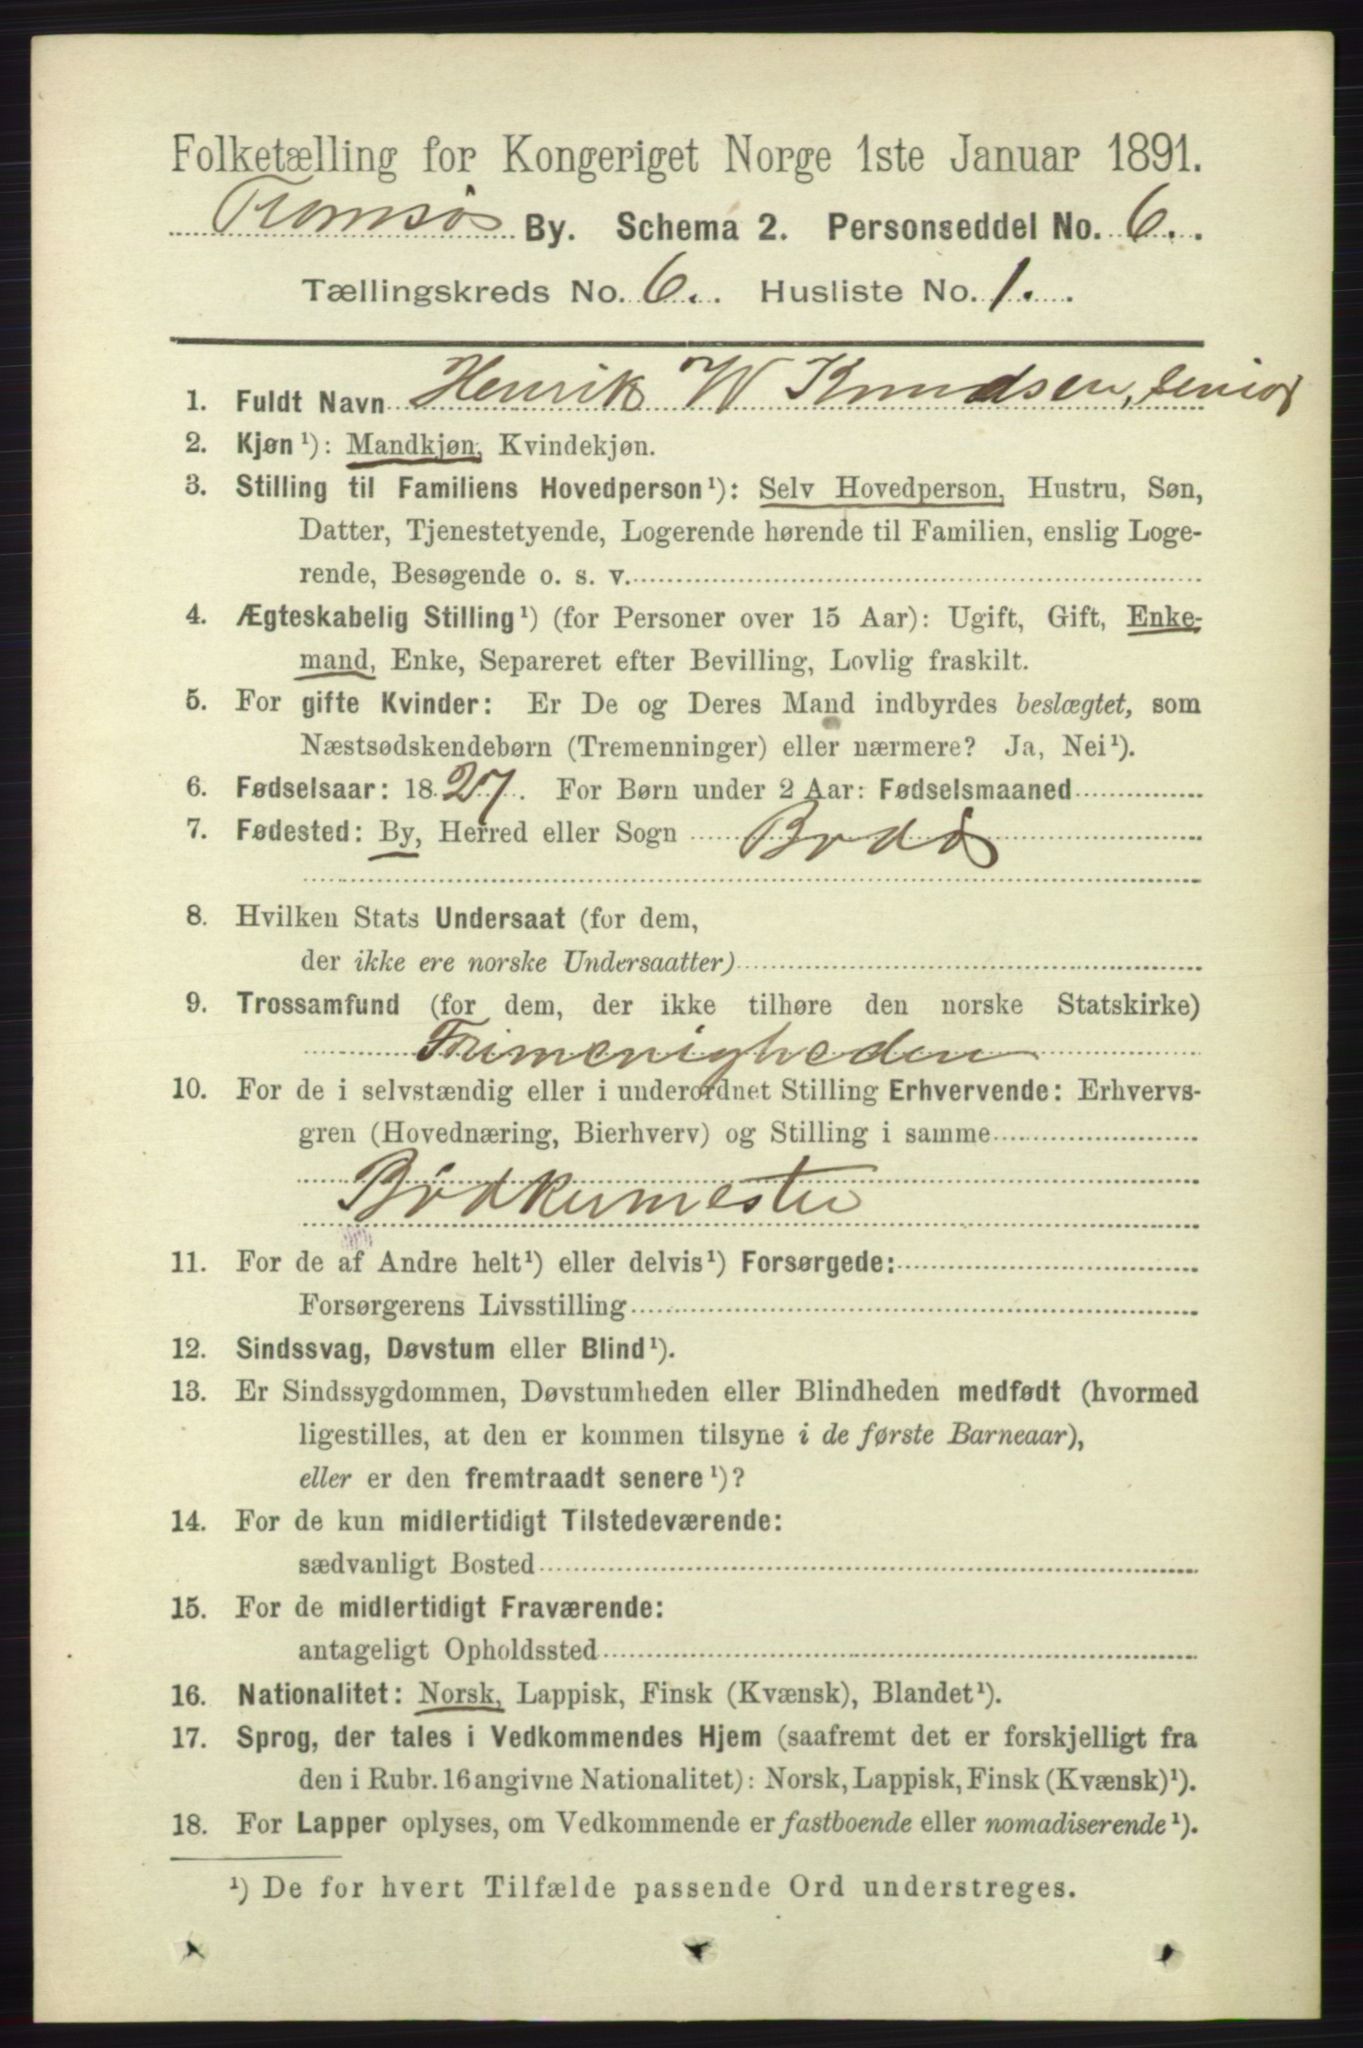 Folketælling for Kongeriget Norge 1ste Januar 1891.
Tromsø By. Schema 2. Personseddel No. 6.
Tællingskreds No. 6. Husliste No. 1.
1. Fuldt Navn Henrik W Knudsen, senior
2. Kjøn¹): Mandkjøn, Kvindekjøn.
3. Stilling til Familiens Hovedperson¹): Selv Hovedperson, Hustru, Søn,
Datter, Tjenestetyende, Logerende hørende til Familien, enslig Loge-
rende, Besøgende o. s. v.
4. Ægteskabelig Stilling¹) (for Personer over 15 Aar): Ugift, Gift, Enke-
mand, Enke, Separeret efter Bevilling, Lovlig fraskilt.
5. For gifte Kvinder: Er De og Deres Mand indbyrdes beslægtet, som
Næstsødskendebørn (Tremenninger) eller nærmere? Ja, Nei¹).
6. Fødselsaar: 1827. For Børn under 2 Aar: Fødselsmaaned
7. Fødested: By, Herred eller Sogn Bodø
8. Hvilken Stats Undersaat (for dem,
der ikke ere norske Undersaatter)
9. Trossamfund (for dem, der ikke tilhøre den norske Statskirke)
Frimenigheden
10. For de i selvstændig eller i underordnet Stilling Erhvervende: Erhvervs-
gren (Hovednæring, Bierhverv) og Stilling i samme
Bødkermester
11. For de af Andre helt¹) eller delvis¹) Forsørgede:
Forsørgerens Livsstilling
12. Sindssvag, Døvstum eller Blind¹).
13. Er Sindssygdommen, Døvstumheden eller Blindheden medfødt (hvormed
ligestilles, at den er kommen tilsyne i de første Barneaar),
eller er den fremtraadt senere¹)?
14. For de kun midlertidigt Tilstedeværende:
sædvanligt Bosted
15. For de midlertidigt Fraværende:
antageligt Opholdssted
16. Nationalitet: Norsk, Lappisk, Finsk (Kvænsk), Blandet¹).
17. Sprog, der tales i Vedkommendes Hjem (saafremt det er forskjelligt fra
den i Rubr. 16 angivne Nationalitet): Norsk, Lappisk, Finsk (Kvænsk)¹).
18. For Lapper oplyses, om Vedkommende er fastboende eller nomadiserende¹).
¹) De for hvert Tilfælde passende Ord understreges.